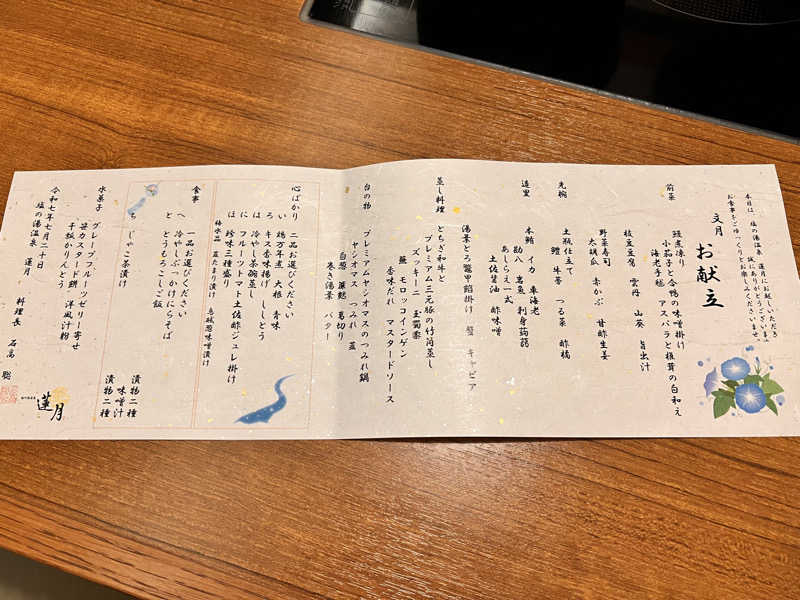 本日は、塩の湯温泉 蓮月にお越しいただき
誠にありがとうございます
お食事をごゆっくりとお楽しみくださいませ
文月 お献立
前菜
鰻煮凍り
小茄子と合鴨の味噌掛け
海老手毬 アスパラと椎茸の白和え
枝豆豆腐 雲丹 山葵 旨出汁
野菜寿司
大胡瓜 赤かぶ 甘酢生姜
先椀
土瓶仕立て
鱧 牛蒡 つる菜 酢橘
造里
本鮪 イカ 車海老
勘八 岩魚 刺身蒟蒻
あしらえ一式
土佐醤油 酢味噌
蒸し料理
湯葉とろ鼈甲餡掛け 蟹 キャビア
とちぎ和牛と
プレミアム三元豚の竹筒蒸し
ズッキーニ 玉蜀黍
蕪 モロッコインゲン
香味だれ マスタードソース
台の物
プレミアムヤシオマスのつみれ鍋
ヤシオマス つみれ 蓋
白葱 蓮麩 葛切り
巻き湯葉 バター
心ばかり
二品お選びください
い 鶏万年煮 大根 青味
ろ キス香味揚げ ししとう
は 冷やし茶碗蒸し
に フルーツトマト土佐酢ジュレ掛け
ほ 珍味三種盛り
蓋たまり漬け 葱味噌漬け
食事
一品お選びください
へ 冷やしぶっかけにらそば
と とうもろこしご飯
漬物二種
味噌汁
ち じゃこ茶漬け
漬物二種
水菓子
グレープフルーツゼリー寄せ
笹カスタード餅 洋風汁粉
干板かりんとう
令和七年七月二十日
塩の湯温泉 蓮月
料理長 石高 聡
蓮月